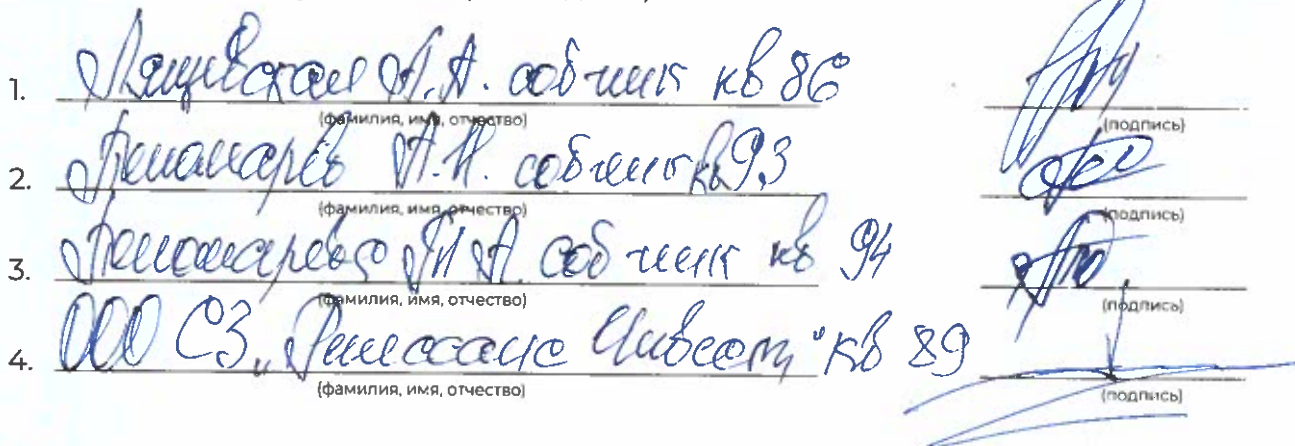 1. Лащевская А.А. соб-ник кв 86
(фамилия, имя, отчество) (подпись)
2. Пономарёв А.Н. соб-ник кв 93
(фамилия, имя, отчество) (подпись)
3. Пономарева А. соб-ник кв 94
(фамилия, имя, отчество) (подпись)
4. ООО СЗ „Ренессанс Инвест" кв 89
(фамилия, имя, отчество) (подпись)